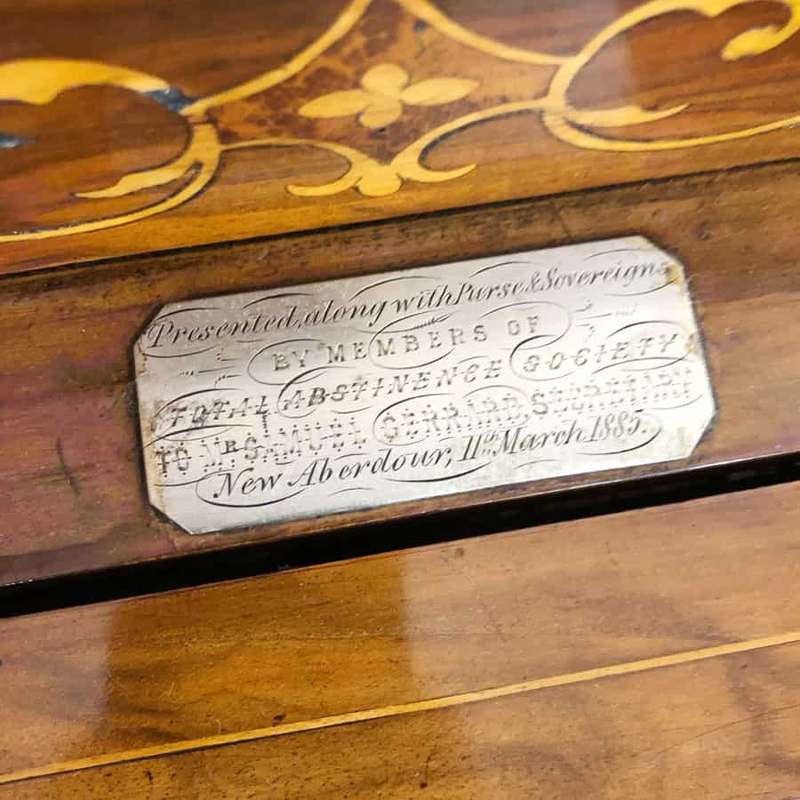 Presented, along with Purse & Sovereigns
BY MEMBERS OF
TOTAL ABSTINENCE SOCIETY
TO MR SAMUEL GERRARD, SECRETARY
New Aberdour, 11th March 1885.